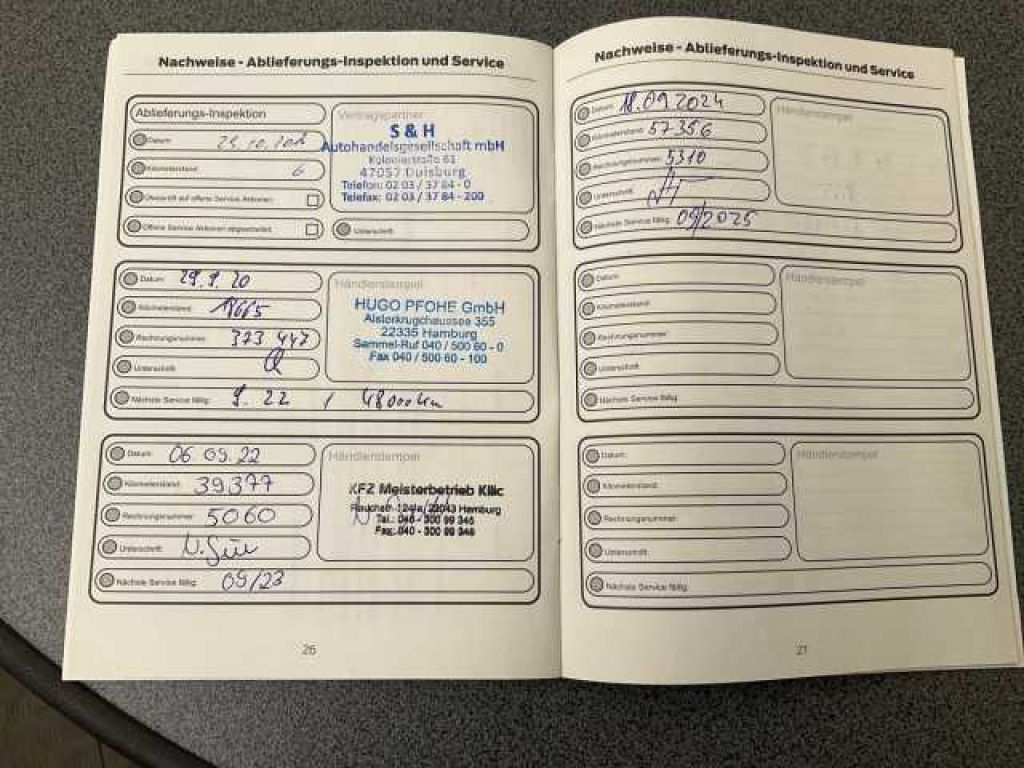 Nachweise - Ablieferungs-Inspektion und Service
Ablieferungs-Inspektion
Datum:
Kilometerstand: 6
Überprüft auf offene Service Aktionen:
Offene Service Aktionen abgearbeitet:
Vertragspartner
S & H
Autohandelsgesellschaft mbH
Koloniestraße 61
47057 Duisburg
Telefon: 02 03 / 37 84 - 0
Telefax: 02 03 / 37 84 - 200
Unterschrift:
Datum: 29.9.20
Kilometerstand:
Rechnungsnummer: 373 447
Unterschrift:
Händlerstempel
HUGO PFOHE GmbH
Alsterkrugchaussee 355
22335 Hamburg
Sammel-Ruf 040 / 500 60 - 0
Fax 040 / 500 60 - 100
Nächste Service fällig: 9. 22 / 48000 km
Datum: 06 09.22
Kilometerstand: 39377
Rechnungsnummer: 5060
Unterschrift:
Händlerstempel
KFZ Meisterbetrieb Kilic
22043 Hamburg
Tel.: 040 - 300 99 345
Fax: 040 - 300 99 346
Nächste Service fällig: 09/23
26
Nachweise - Ablieferungs-Inspektion und Service
Datum: 18.09.2024
Kilometerstand: 57356
Rechnungsnummer: 5310
Unterschrift:
Händlerstempel
Nächste Service fällig: 09/2025
Datum:
Kilometerstand:
Rechnungsnummer:
Unterschrift:
Händlerstempel
Nächste Service fällig:
Datum:
Kilometerstand:
Rechnungsnummer:
Unterschrift:
Händlerstempel
Nächste Service fällig:
21